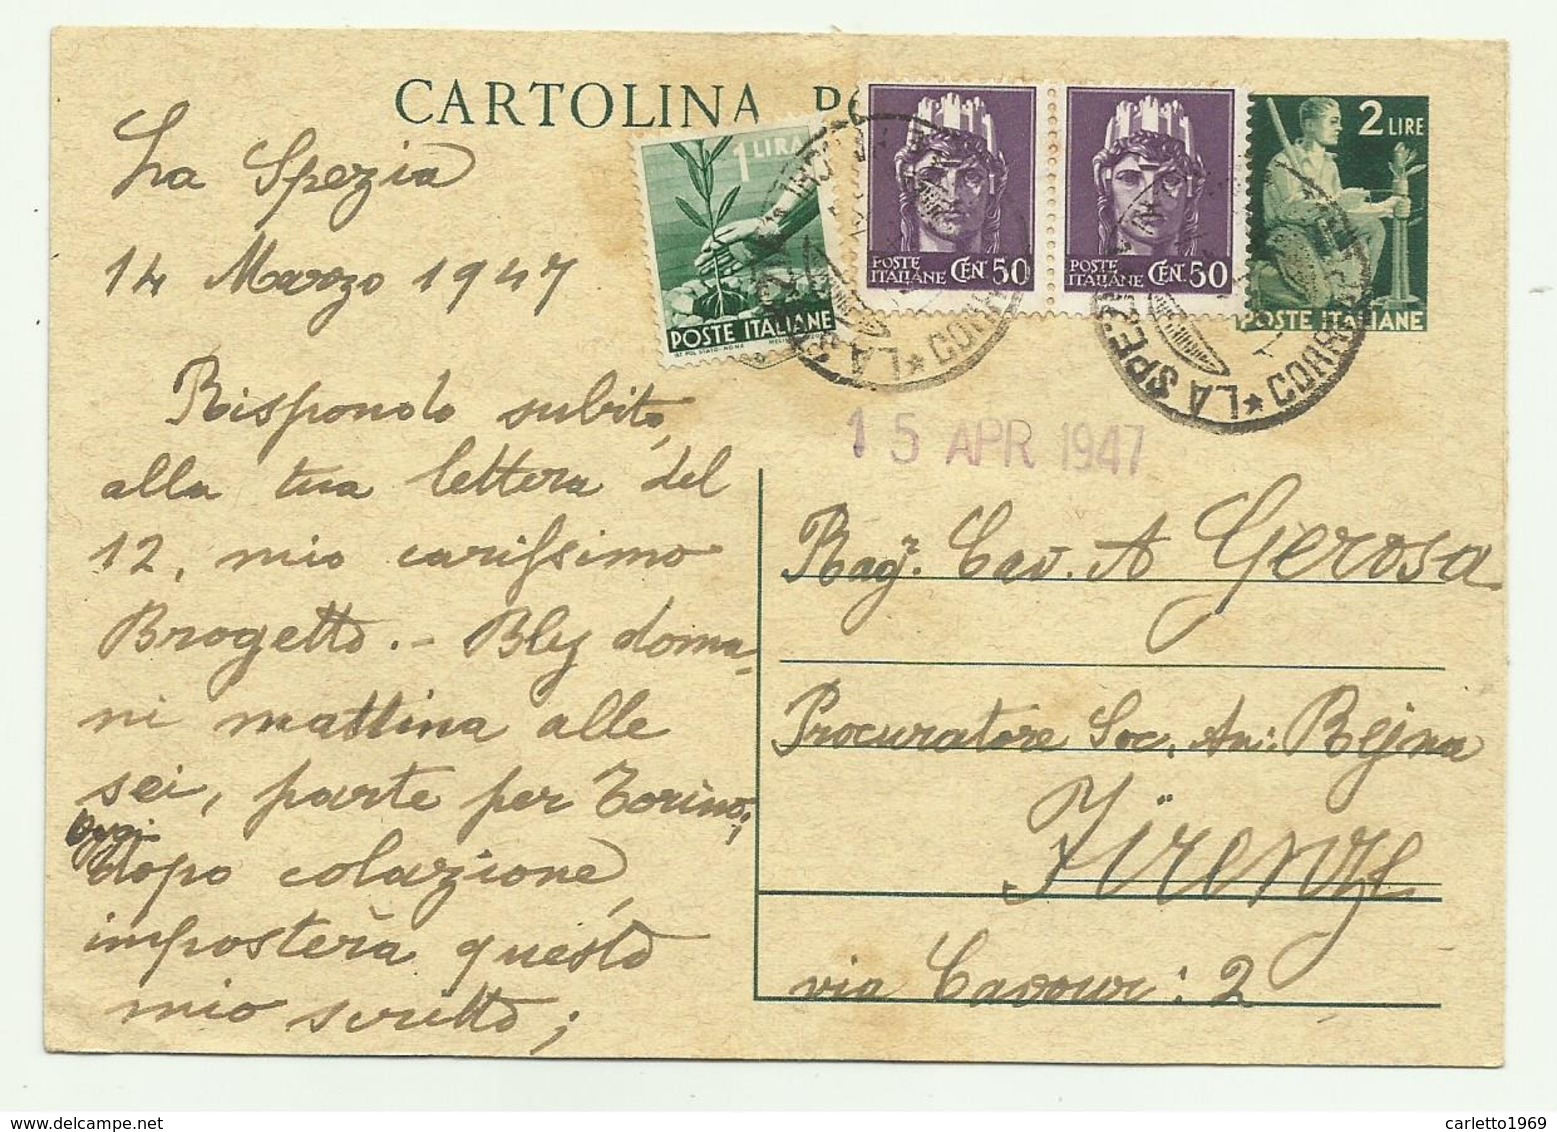 CARTOLINA PO
La Spezia
14 Marzo 1947
Rispondo subito,
alla tua lettera del
12, mio carissimo
Brogetto. - Bly doma-
ni mattina alle
sei, parte per Torino;
Oggi
dopo colazione,
imposterà questo
mio scritto;
1 LIRA
POSTE ITALIANE
POSTE ITALIANE CENT. 50
POSTE ITALIANE CENT. 50
2 LIRE
POSTE ITALIANE
LA SPEZIA
CORR
LA SPEZIA
CORR
15 APR 1947
Rag. Cav. A Gerosa
Procuratore Soc. An: Rejna
Firenze
via Cavour: 2
carletto1969